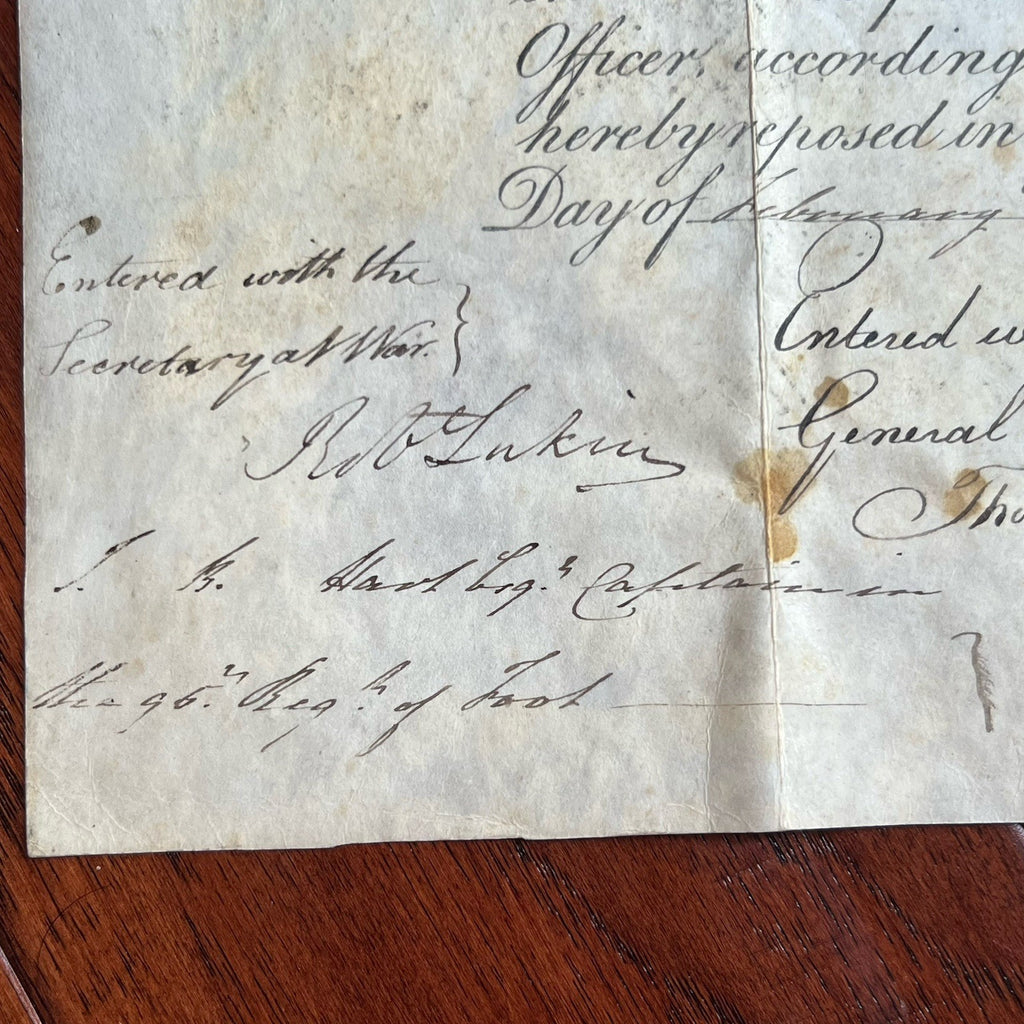 Officer, according
hereby reposed in
Day of February
Entered with the
Secretary at War.
Entered w
General
Robt Lukin
Tho
J. K. Hart Esqr. Captain in
the 95th Regt. of Foot